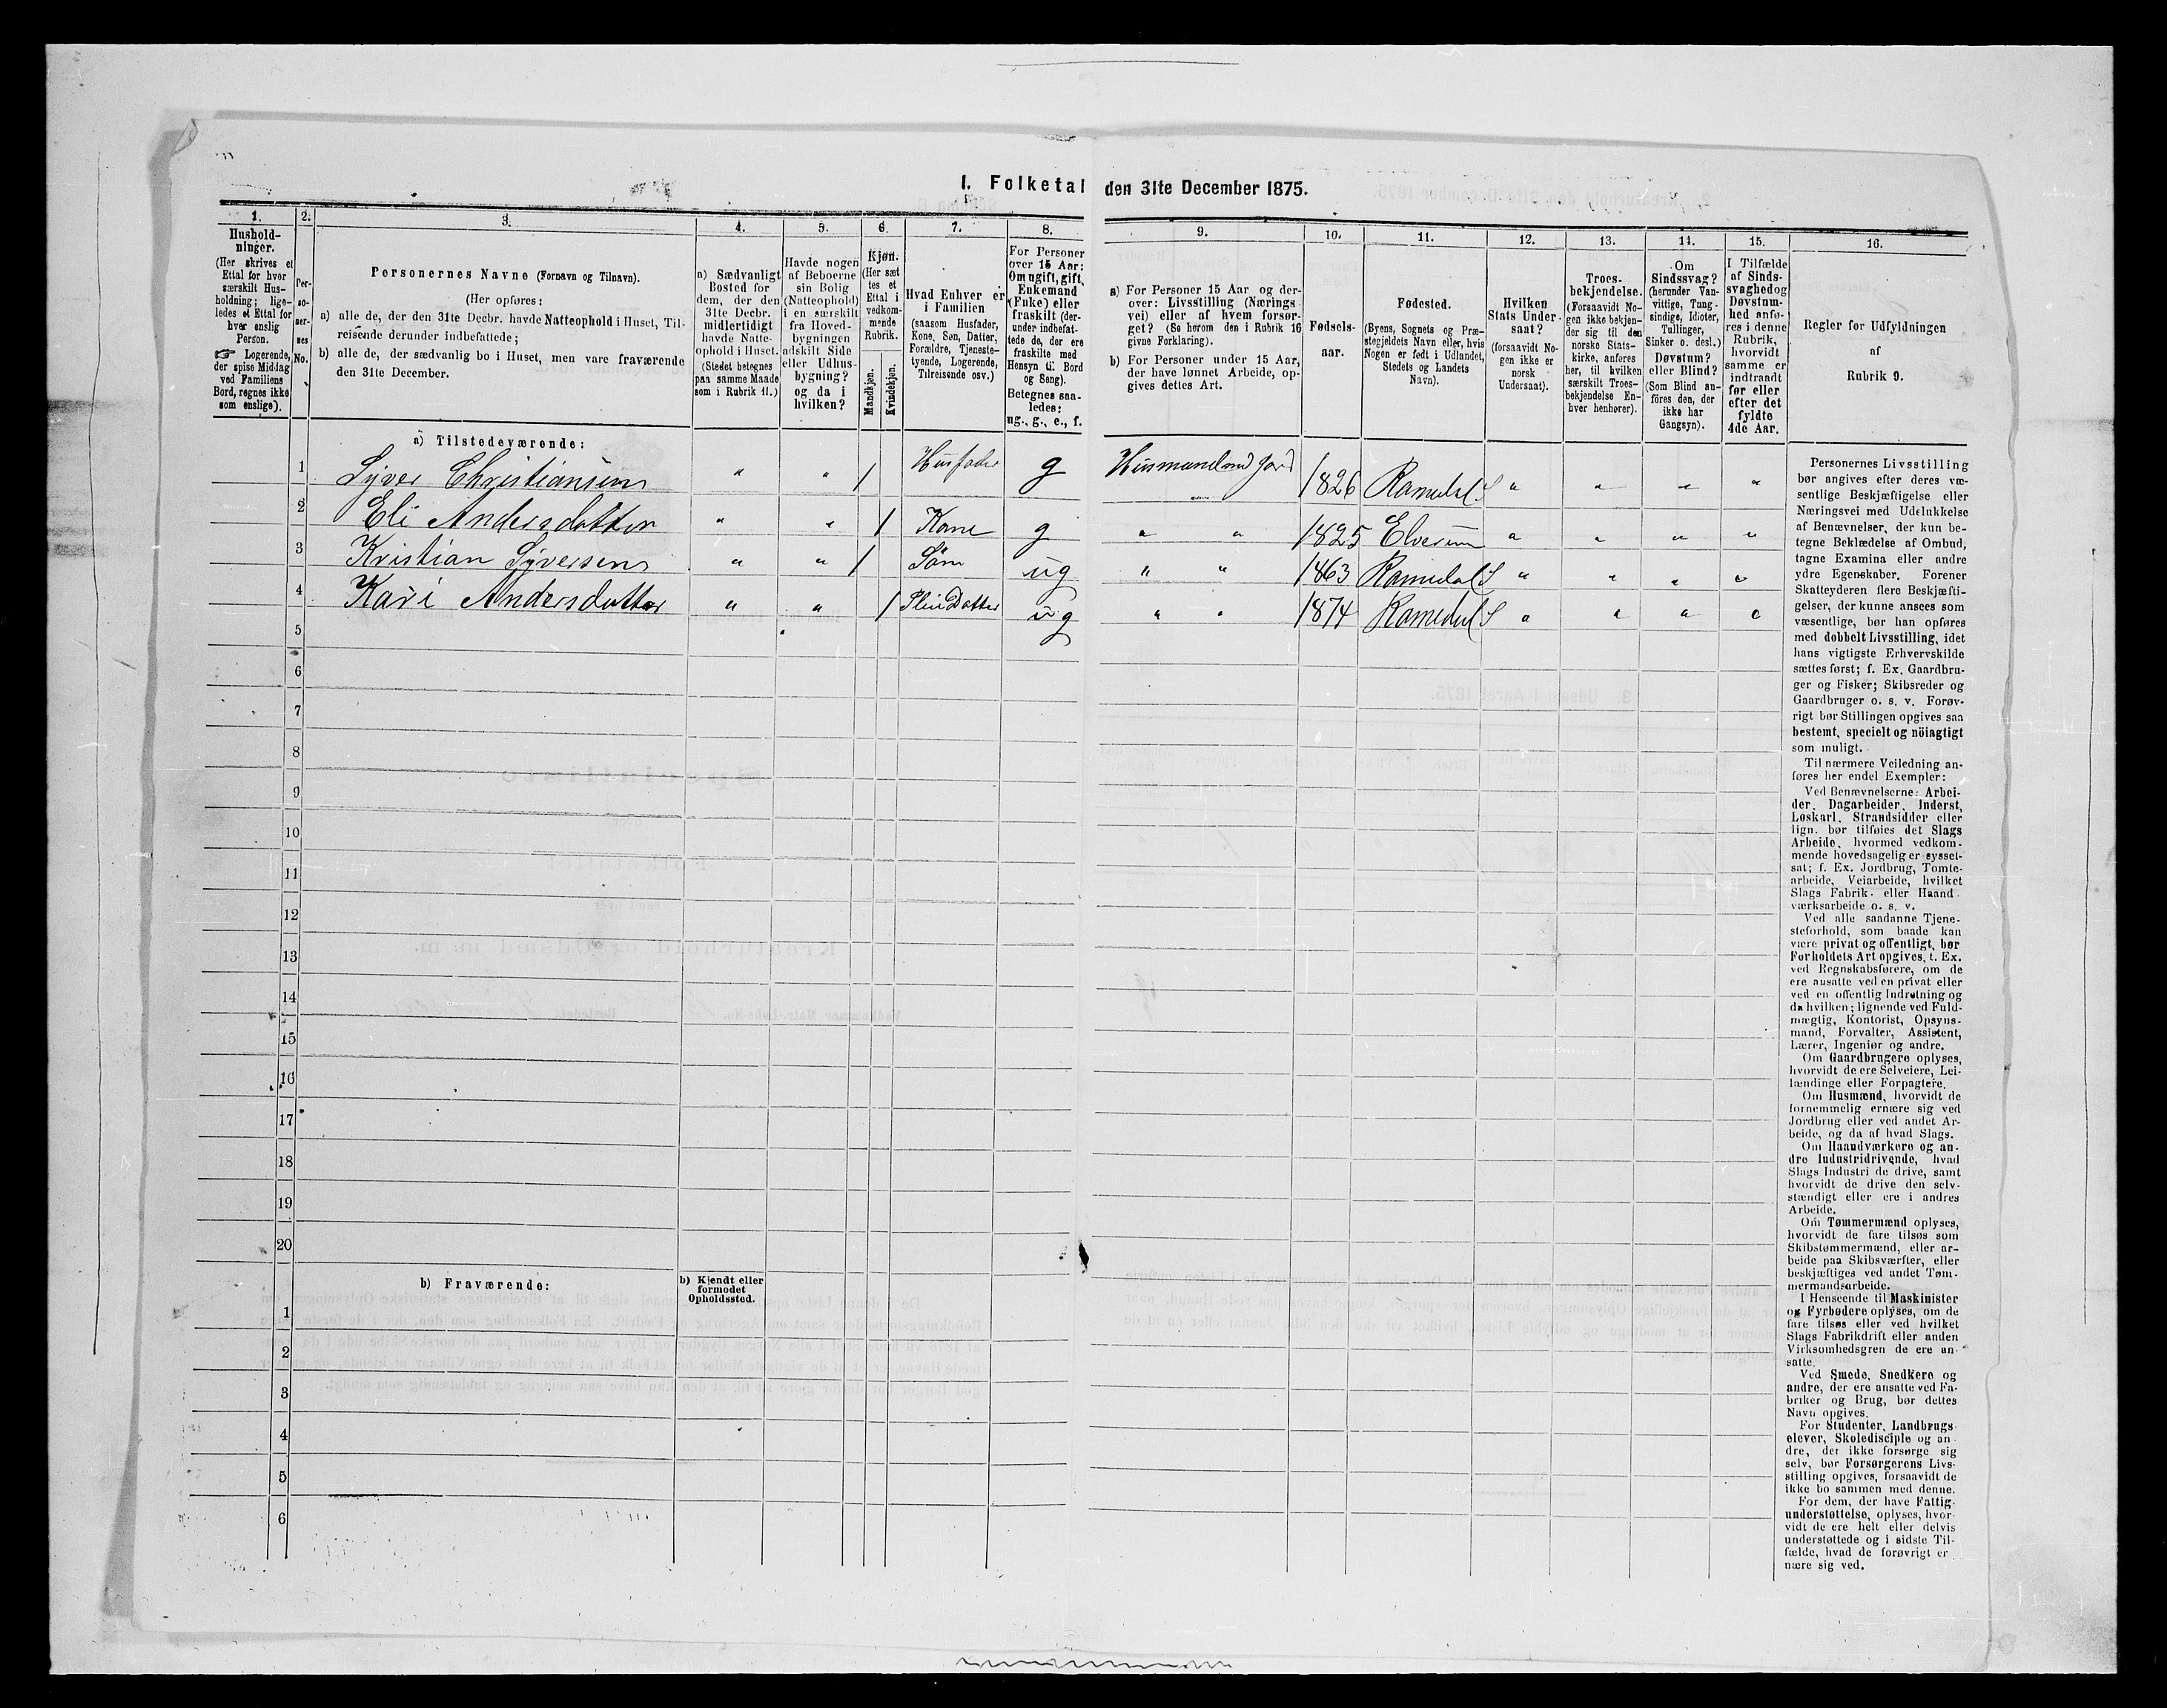 1. Folketal den 31te December 1875.
1.
Hushold-
ninger.
(Her skrives et
Ettal for hver
særskilt Hus-
holdning; lige-
ledes et Ettal for
hver enslig
Person.
☞ Logerende,
der spise Middag
ved Familiens
Bord, regnes ikke
som enslige).
2.
Per-
so-
ner-
nes
No.
3.
Personernes Navne (Fornavn og Tilnavn).
(Her opføres:
a) alle de, der den 31te Decbr. havde Natteophold i Huset, Til-
reisende derunder indbefattede;
b) alle de, der sædvanlig bo i Huset, men vare fraværende
den 31te December.
4.
a) Sædvanligt
Bosted for
dem, der den
31te Decbr.
midlertidigt
havde Natte-
ophold i Huset.
(Stedet betegnes
paa samme Maade
som i Rubrik 11.)
5.
Havde nogen
af Beboerne
sin Bolig
(Natteophold)
i en særskilt
fra Hoved-
bygningen
adskilt Side
eller Udhus-
bygning?
og da i
hvilken?
6.
Kjøn.
(Her sæt
tes et
Ettal i
vedkom-
mende
Rubrik.
Mandkjøn.
Kvindekjøn.
7.
Hvad Enhver er
i Familien
(saasom Husfader,
Kone, Søn, Datter,
Forældre, Tjeneste-
tyende, Logerende,
Tilreisende osv.)
8.
For Personer
over 15 Aar:
Om ugift, gift,
Enkemand
(Enke) eller
fraskilt (der-
under indbefat-
tede de, der ere
fraskilte med
Hensyn til Bord
og Seng).
Betegnes saa-
ledes:
ug., g., e., f.
9.
a) For Personer 15 Aar og der-
over: Livsstilling (Nærings-
vei) eller af hvem forsør-
get? (Se herom den i Rubrik 16
givne Forklaring).
b) For Personer under 15 Aar,
der have lønnet Arbeide, op-
gives dettes Art.
10.
Fødsels-
aar.
11.
Fødested.
(Byens, Sognets og Præ-
stegjeldets Navn eller, hvis
Nogen er født i Udlandet,
Stedets og Landets
Navn).
12.
Hvilken
Stats Under-
saat?
(forsaavidt No-
gen ikke er
norsk
Undersaat).
13.
Troes-
bekjendelse.
(Forsaavidt No-
gen ikke bekjen-
der sig til den
norske Stats-
kirke, anføres
her, til hvilken
særskilt Troes-
bekjendelse En-
hver henhører).
14.
Om
Sindssvag?
(herunder Van-
vittige, Tung-
sindige, Idioter,
Tullinger,
Sinker o. desl.)
Døvstum?
eller Blind?
(Som Blind an-
føres den, der
ikke har
Gangsyn).
15.
I Tilfælde
af Sinds-
svaghed og
Døvstum-
hed anfø-
res i denne
Rubrik,
hvorvidt
samme er
indtraadt
før eller
efter det
fyldte
4de Aar.
16.
Regler for Udfyldningen
af
Rubrik 9.
a) Tilstedeværende:
1 Syver Christiansen " " 1 Husfader g Husmand med Jord 1826 Romedal S " " " "
2 Eli Andersdatter " " 1 Kone g " " 1825 Elverum " " " "
3 Kristian Syversen " " 1 Søn ug " " 1863 Romedal S " " " "
4 Kari Andersdatter " " 1 Pleie Datter ug " " 1874 Romedal S " " " "
5
6
7
8
9
10
11
12
13
14
15
16
17
18
19
20
b) Fraværende:
b) Kjendt eller
formodet
Opholdssted.
1
2
3
4
5
6
Personernes Livsstilling
bør angives efter deres væ-
sentlige Beskjæftigelse eller
Næringsvei med Udelukkelse
af Benævnelser, der kun be-
tegne Beklædelse af Ombud,
tagne Examina eller andre
ydre Egenskaber. Forener
Skatteyderen flere Beskjæfti-
gelser, der kunne ansees som
væsentlige, bør han opføres
med dobbelt Livsstilling, idet
hans vigtigste Erhvervskilde
sættes først; f. Ex. Gaardbru-
ger og Fisker; Skibsreder og
Gaardbruger o. s. v. Forøv-
rigt bør Stillingen opgives saa
bestemt, specielt og nöiagtigt
som muligt.
Til nærmere Veiledning an-
føres her endel Exempler:
Ved Benævnelserne: Arbei-
der, Dagarbeider, Inderst,
Løskarl, Strandsidder eller
lign. bør tilføies det Slags
Arbeide, hvormed vedkom-
mende hovedsagelig er syssel-
sat; f. Ex. Jordbrug, Tomte-
arbeide, Veiarbeide, hvilket
Slags Fabrik- eller Haand-
værksarbeide o. s. v.
Ved alle saadanne Tjene-
steforhold, som baade kan
være privat og offentligt, bør
Forholdets Art opgives, f. Ex.
ved Regnskabsførere, om de
ere ansatte ved en privat eller
ved en offentlig Indretning og
da hvilken; lignende ved Fuld-
mægtig, Kontorist, Opsyns-
mand, Forvalter, Assistent,
Lærer, Ingeniør og andre.
Om Gaardbrugere oplyses,
hvorvidt de ere Selveiere, Lei-
lændinge eller Forpagtere.
Om Husmænd, hvorvidt de
fornemmelig ernære sig ved
Jordbrug eller ved andet Ar-
beide, og da af hvad Slags.
Om Haandværkere og an-
dre Industridrivende, hvad
Slags Industri de drive, samt
hvorvidt de drive den selv-
stændigt eller ere i andres
Arbeide.
Om Tømmermænd oplyses,
hvorvidt de fare tilsøs som
Skibstømmermænd, eller ar-
beide paa Skibsværfter, eller
beskjæftiges ved andet Tøm-
mermandsarbeide.
I Henseende til Maskinister
og Fyrbødere oplyses, om de
fare tilsøs eller ved hvilket
Slags Fabrikdrift eller anden
Virksomhedsgren de ere an-
satte.
Ved Smede, Snedkere og
andre, der ere ansatte ved Fa-
briker og Brug, bør dettes
Navn opgives.
For Studenter, Landbrugs-
elever, Skoledisciple og an-
dre, der ikke forsørge sig
selv, bør Forsørgerens Livs-
stilling opgives, forsaavidt de
ikke bo sammen med denne.
For dem, der have Fattig-
understøttelse, oplyses, hvor-
vidt de ere helt eller delvis
understøttede og i sidste Til-
fælde, hvad de forøvrigt er
nære sig ved.